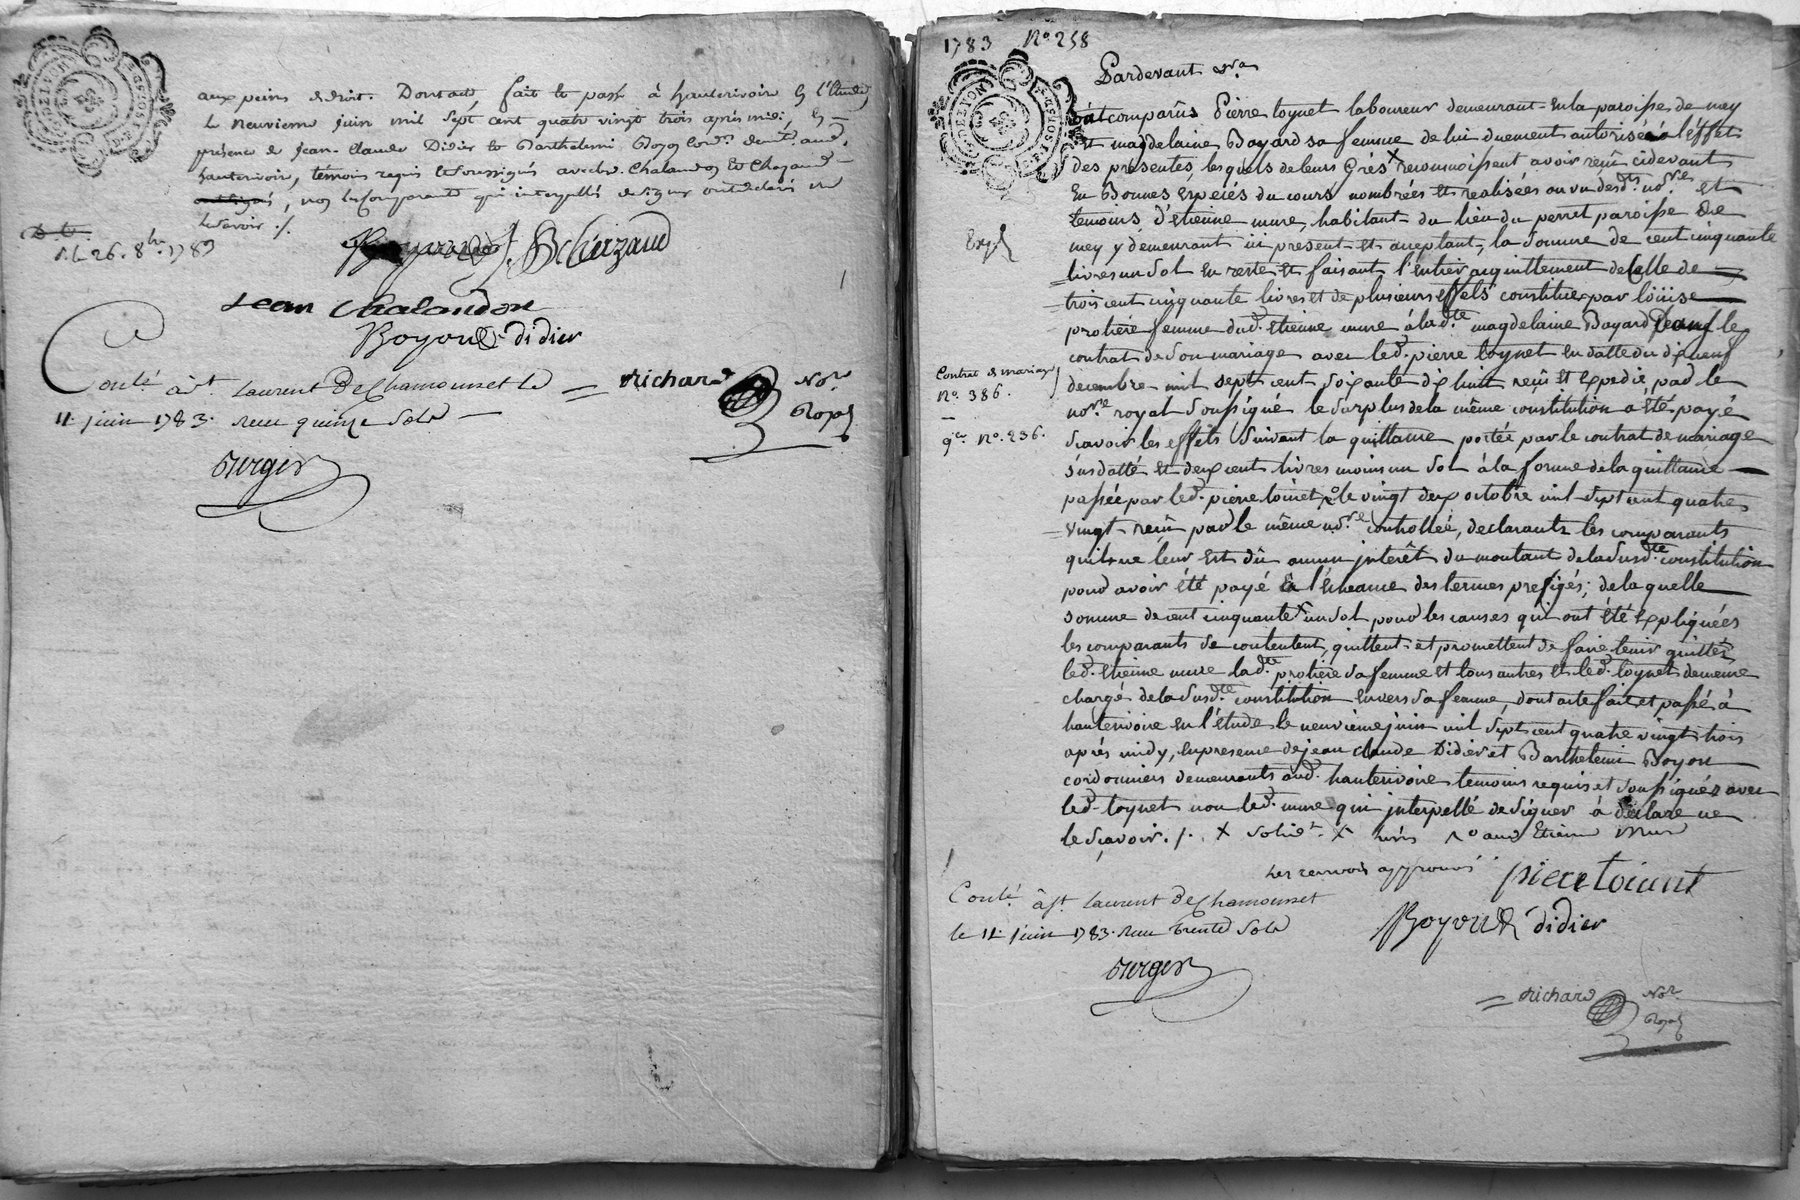 aux peines de droit. Dont acte, fait et passé à hauterivoire en l'étude
le neuvieme juin mil sept cent quatre vingt trois après midi, en
présence de Jean-Claude Didier et Barthelemi Boyon cord.rs dem.ts aud.
hauterivoire, témoins requis et soussignés avec le Chalandon et Cherzaud
, non les comparants qui interpellés de signer ont déclaré ne
le scavoir ./.
26. 8.bre 1789
B Cherzaud
Jean Chalandon
Boyon didier
Conté à St Laurent De Chamousset le
11. juin 1783. reçu quinze Sols
= Richard No.re
Royal
1783 No. 258
Pardevant
ont comparûs Pierre toynet laboureur demeurant en la paroisse de mey
et magdelaine Bayard sa femme de lui duement autorisée à l'éffet
des présentes, lesquels de leurs Grés x reconnoissent avoir reçu cidevant
En Bonnes Especiés du cours nombrées et realisées au vu desd.ts no.re et
temoins, d'etienne mure, habitant du lieu du perret paroisse De
mey y demeurant ici present et acceptant, la Somme de cent cinquante
livres un Sol en reste et faisant l'entier acquittement de Celle de
trois cent cinquante livres et de plusieurs effets constituée par loüise
protiere femme dud. etienne mure à lad.te magdelaine Bayard Dans le
contrat de Son mariage avec led. pierre toynet en datte du dixneuf
decembre mil sept cent soixante dix huit reçu et expedié par le
no.re royal Soussigné le surplus de la même constitution a été payé
Scavoir les effets Suivant la quittance portée par le contrat de mariage
susdatté et deux cent livres moins un Sol à la forme de la quittance
passée par led. pierre toinet le vingt deux octobre mil sept cent quatre
vingt reçu par le même no.re controllée, declarants les comparants
qu'il ne leur est dû aucun interêt du montant de la Susd.te constitution
pour avoir été payé à l'échéance des termes prefigés; de laquelle
somme de cent cinquante x un sol pour les causes qui ont été expliquées
les comparants se contentent, quittent et promettent de faire tenir quittes
led. Etienne mure lad.te protiere sa femme et tous autres et led. toynet demeure
chargé de la Susd.te constitution envers sa femme, dont acte fait et passé à
hauterivoire en l'étude le neuvieme juin mil Sept cent quatre vingt trois
après midy, en presence de jean claude Didier et Barthelemi Boyon
cordonniers demeurants aud. hauterivoire temoins requis et soussignéz avec
led. toynet non led. mure qui interpellé de Signer a déclaré ne
le Scavoir ./. x solid.t x livres
Contrat de mariage
No. 386.
q.ce No. 236.
Les renvois approuvés
Pierre toinent
Conté à St. Laurent De Chamousset
le 11. juin 1783. reçu trente Sols
Boyon didier
= Richard No.re
Royal